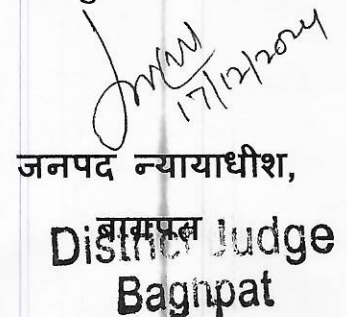 17/12/2024
जनपद न्यायाधीश,
बागपत
District Judge
Baghpat